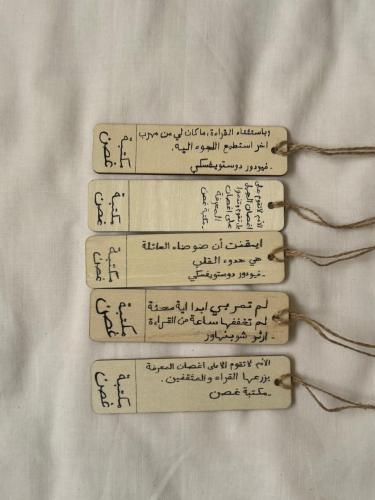 وباستثناء القراءة، ماكان لي من مهرب
اخر استطيع اللجوء اليه.
- فيودور دوستويفسكي
مكتبة
غصن
الأمم لا تقوم على
اغصان
على اغصان
المعرفة
- مكتبة غصن
مكتبة
غصن
ايقنت أن ضوضاء العائلة
هي هدوء القلب
- فيودور دوستويفسكي
مكتبة
غصن
لم تمر بي ابدا اية محنة
لم تخففها ساعة من القراءة
- ارثر شوبنهاور
مكتبة
غصن
الأمم لا تقوم الا على اغصان المعرفة
يزرعها القراء والمثقفين.
- مكتبة غصن
مكتبة
غصن